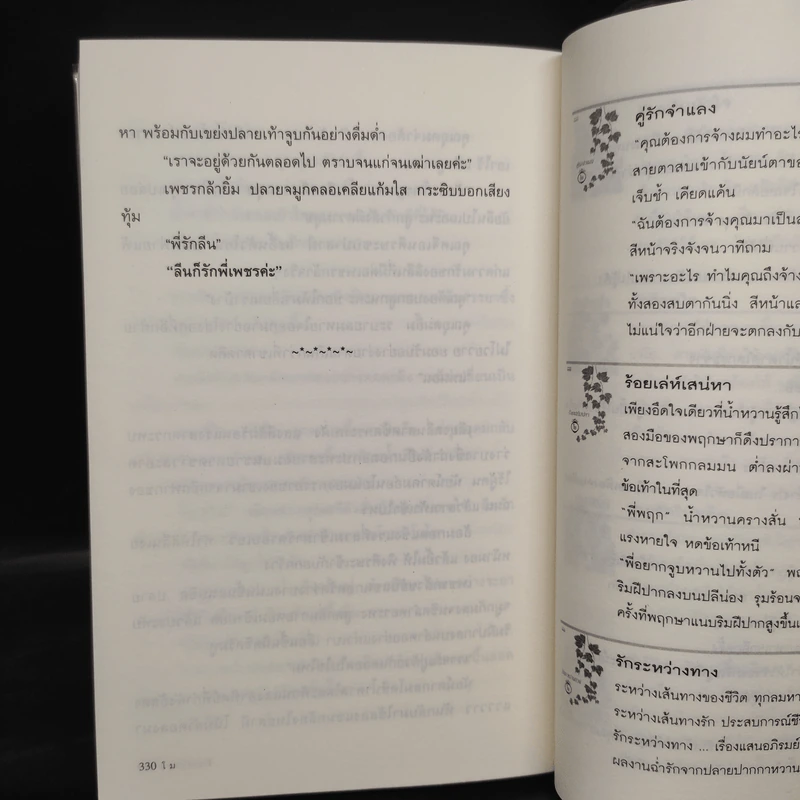 หา พร้อมกับเขย่งปลายเท้าจูบกันอย่างดื่มด่ำ
"เราจะอยู่ด้วยกันตลอดไป ตราบจนแก่จนเฒ่าเลยค่ะ"
เพชรกล้ายิ้ม ปลายจมูกคลอเคลียแก้มใส กระซิบบอกเสียง
ทุ้ม
"พี่รักลีน"
"ลีนก็รักพี่เพชรค่ะ"
~*~*~*~*~
330
คู่รักจำแลง
"คุณต้องการจ้างผมทำอะไร
สายตาสบเข้ากับนัยน์ตาขอ
เจ็บช้ำ เคียดแค้น
"ฉันต้องการจ้างคุณมาเป็น
สีหน้าจริงจังจนวาทีถาม
"เพราะอะไร ทำไมคุณถึงจ้าง
ทั้งสองสบตากันนิ่ง สีหน้าแล
ไม่แน่ใจว่าอีกฝ่ายจะตกลงกับ
ร้อยเล่ห์เสน่หา
เพียงอึดใจเดียวที่น้ำหวานรู้สึก
สองมือของพฤกษาก็ดึงปรากา
จากสะโพกกลมมน ต่ำลงผ่า
ข้อเท้าในที่สุด
"พี่พฤก" น้ำหวานครางสั่น
แรงหายใจ หดข้อเท้าหนี
"พี่อยากจูบหวานไปทั้งตัว" พฤ
ริมฝีปากลงบนปลีน่อง รุมร้อนจ
ครั้งที่พฤกษาแนบริมฝีปากสูงขึ้น
รักระหว่างทาง
ระหว่างเส้นทางของชีวิต ทุกลมหา
ระหว่างเส้นทางรัก ประสบการณ์ชี
รักระหว่างทาง ... เรื่องแสนอภิรมย์
ผลงานฉ่ำรักจากปลายปากกาหวาน